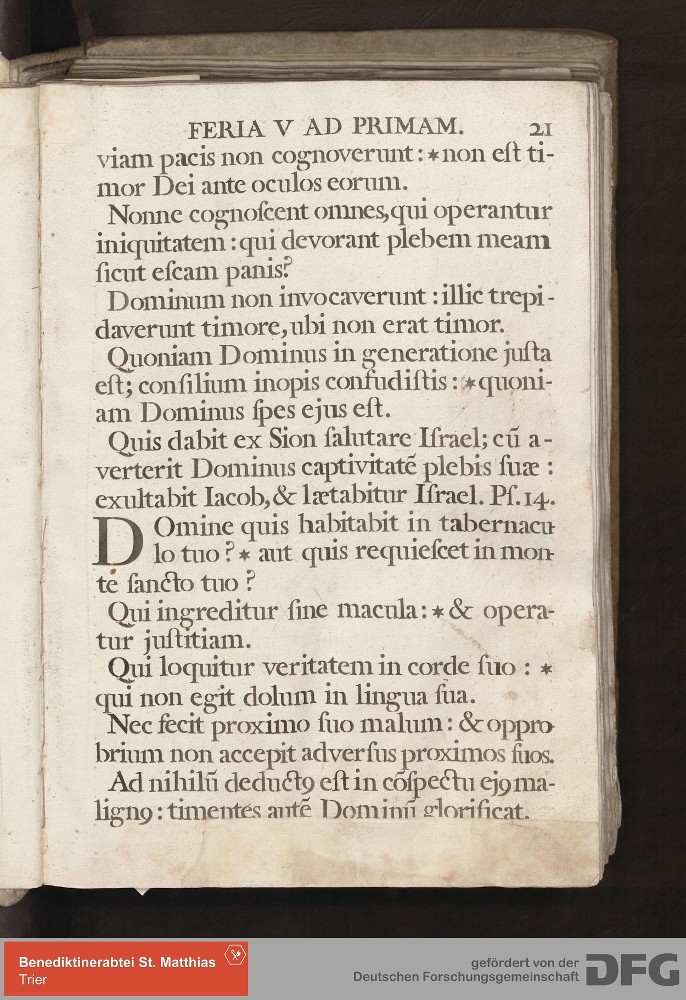 FERIA V AD PRIMAM. 21
viam pacis non cognoverunt : * non eſt ti-
mor Dei ante oculos eorum.
Nonne cognoſcent omnes, qui operantur
iniquitatem : qui devorant plebem meam
ſicut eſcam panis?
Dominum non invocaverunt : illic trepi-
daverunt timore, ubi non erat timor.
Quoniam Dominus in generatione juſta
eſt; conſilium inopis confudiſtis : * quoni-
am Dominus ſpes ejus eſt.
Quis dabit ex Sion ſalutare Iſrael; cū a-
verterit Dominus captivitatē plebis ſuæ :
exultabit Iacob, & lætabitur Iſrael. Pſ. 14.
DOmine quis habitabit in tabernacu
lo tuo ? * aut quis requieſcet in mon-
te ſancto tuo ?
Qui ingreditur ſine macula : * & opera-
tur juſtitiam.
Qui loquitur veritatem in corde ſuo : *
qui non egit dolum in lingua ſua.
Nec fecit proximo ſuo malum : & oppro
brium non accepit adverſus proximos ſuos.
Ad nihilū deductꝰ eſt in cōſpectu ejꝰ ma-
lignꝰ : timentes autē Dominū glorificat.
Benediktinerabtei St. Matthias
Trier
gefördert von der
Deutschen Forschungsgemeinschaft DFG